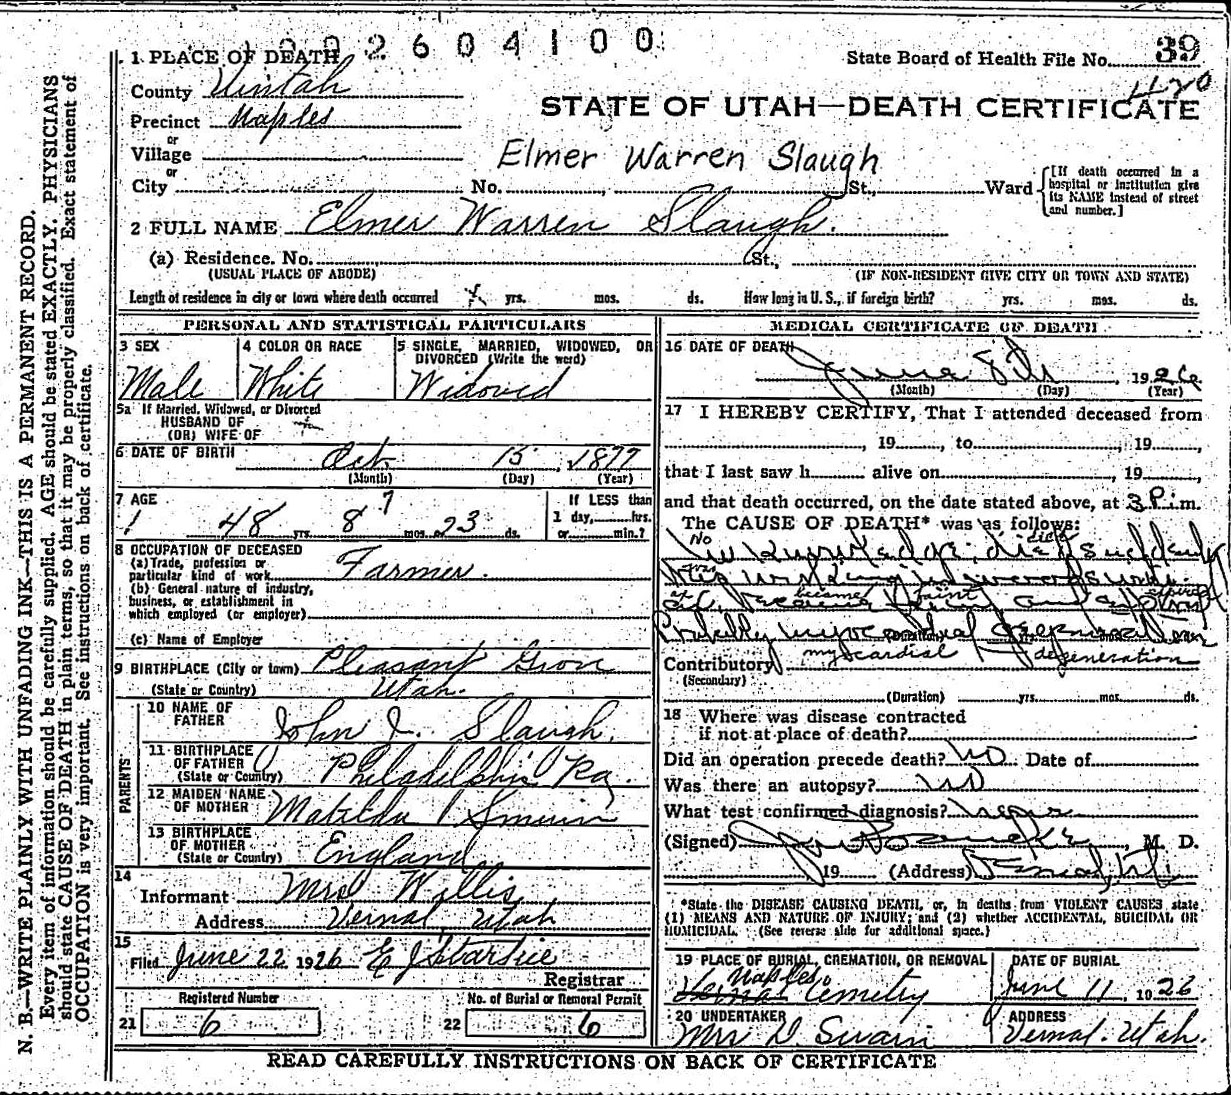 1 0 0 2 6 0 4 1 0 0
1 PLACE OF DEATH
State Board of Health File No. 39
420
County Uintah
STATE OF UTAH—DEATH CERTIFICATE
Precinct Naples
or
Village
Elmer Warren Slaugh
or
City No. St., Ward
[If death occurred in a hospital or institution give its NAME instead of street and number.]
2 FULL NAME Elmer Warren Slaugh.
(a) Residence. No. St.,
(USUAL PLACE OF ABODE) (IF NON-RESIDENT GIVE CITY OR TOWN AND STATE)
Length of residence in city or town where death occurred yrs. mos. ds. How long in U. S., if foreign birth? yrs. mos. ds.
PERSONAL AND STATISTICAL PARTICULARS
3 SEX
Male
4 COLOR OR RACE
White
5 SINGLE, MARRIED, WIDOWED, OR DIVORCED (Write the word)
Widowed
5a If Married, Widowed, or Divorced
HUSBAND OF
(OR) WIFE OF
6 DATE OF BIRTH Oct. 15, 1877
(Month) (Day) (Year)
7 AGE
48 yrs. 8 7 mos. 23 ds.
If LESS than
1 day, hrs.
or min.?
8 OCCUPATION OF DECEASED
(a) Trade, profession or
particular kind of work Farmer.
(b) General nature of industry,
business, or establishment in
which employed (or employer)
(c) Name of Employer
9 BIRTHPLACE (City or town) Pleasant Grov
(State or Country) Utah.
PARENTS
10 NAME OF
FATHER John J. Slaugh.
11 BIRTHPLACE
OF FATHER
(State or Country) Philadelphia Pa.
12 MAIDEN NAME
OF MOTHER Matilda
13 BIRTHPLACE
OF MOTHER
(State or Country) England
14
Informant Mrs Willis
Address Vernal Utah
15
Filed June 22 1926 E J
Registrar
Registered Number
21 6
No. of Burial or Removal Permit
22 6
MEDICAL CERTIFICATE OF DEATH
16 DATE OF DEATH
June 8th, 1926
(Month) (Day) (Year)
17 I HEREBY CERTIFY, That I attended deceased from
19, to 19,
that I last saw h alive on 19
and that death occurred, on the date stated above, at 3 P. m.
The CAUSE OF DEATH* was as follows:
No died
No Knowledge. died suddenly
was
became faint expired
Probably myocardial degeneration
(Duration)
myocardial degeneration
Contributory
(Secondary)
(Duration) yrs. mos. ds.
18 Where was disease contracted
if not at place of death?
Did an operation precede death? No Date of
Was there an autopsy? No
What test confirmed diagnosis?
(Signed) M. D.
19 (Address)
*State the DISEASE CAUSING DEATH, or, in deaths from VIOLENT CAUSES, state
(1) MEANS AND NATURE OF INJURY; and (2) whether ACCIDENTAL, SUICIDAL OR
HOMICIDAL. (See reverse side for additional space.)
19 PLACE OF BURIAL, CREMATION, OR REMOVAL
Naples
Vernal Cemetry
DATE OF BURIAL
June 11, 1926
20 UNDERTAKER
Mrs D Swain
ADDRESS
Vernal. Utah.
READ CAREFULLY INSTRUCTIONS ON BACK OF CERTIFICATE
N. B.—WRITE PLAINLY WITH UNFADING INK—THIS IS A PERMANENT RECORD.
Every item of information should be carefully supplied. AGE should be stated EXACTLY. PHYSICIANS
should state CAUSE OF DEATH in plain terms, so that it may be properly classified. Exact statement of
OCCUPATION is very important. See instructions on back of certificate.